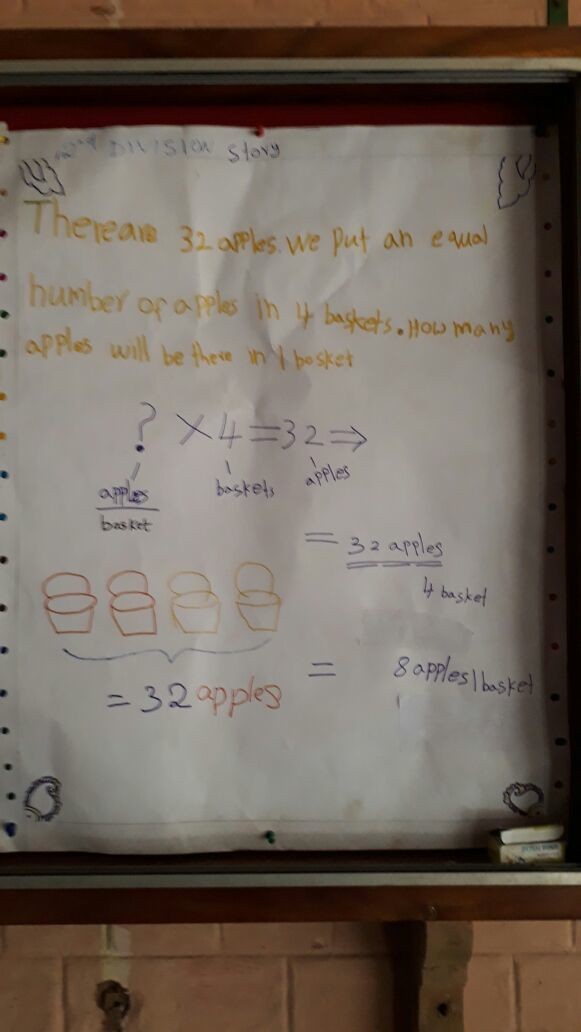 2nd DIVISION Story
There are 32 apples. We put an equal
number of apples in 4 baskets. How many
apples will be there in 1 bosket
? × 4 = 32 ⇒
apples baskets apples
basket
= 32 apples
4 basket
= 8 apples/basket
= 32 apples